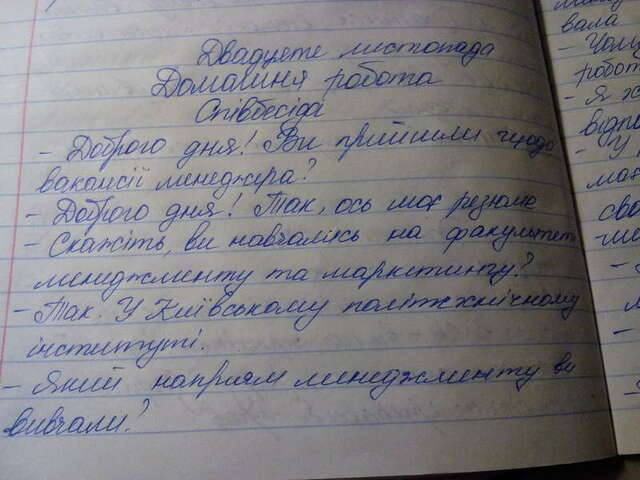 Двадцяте листопада
Домашня робота
Співбесіда
- Доброго дня! Ви прийшли щодо
вакансії менеджера?
- Доброго дня! Так, ось моє резюме
- Скажіть, ви навчались на факультеті
менеджменту та маркетингу?
- Так. У Київському політехнічному
інституті.
- Який напрям менеджменту ви
вивчали?
вала
- Чому
робот
- Я ж
відпо
- У
має
сво